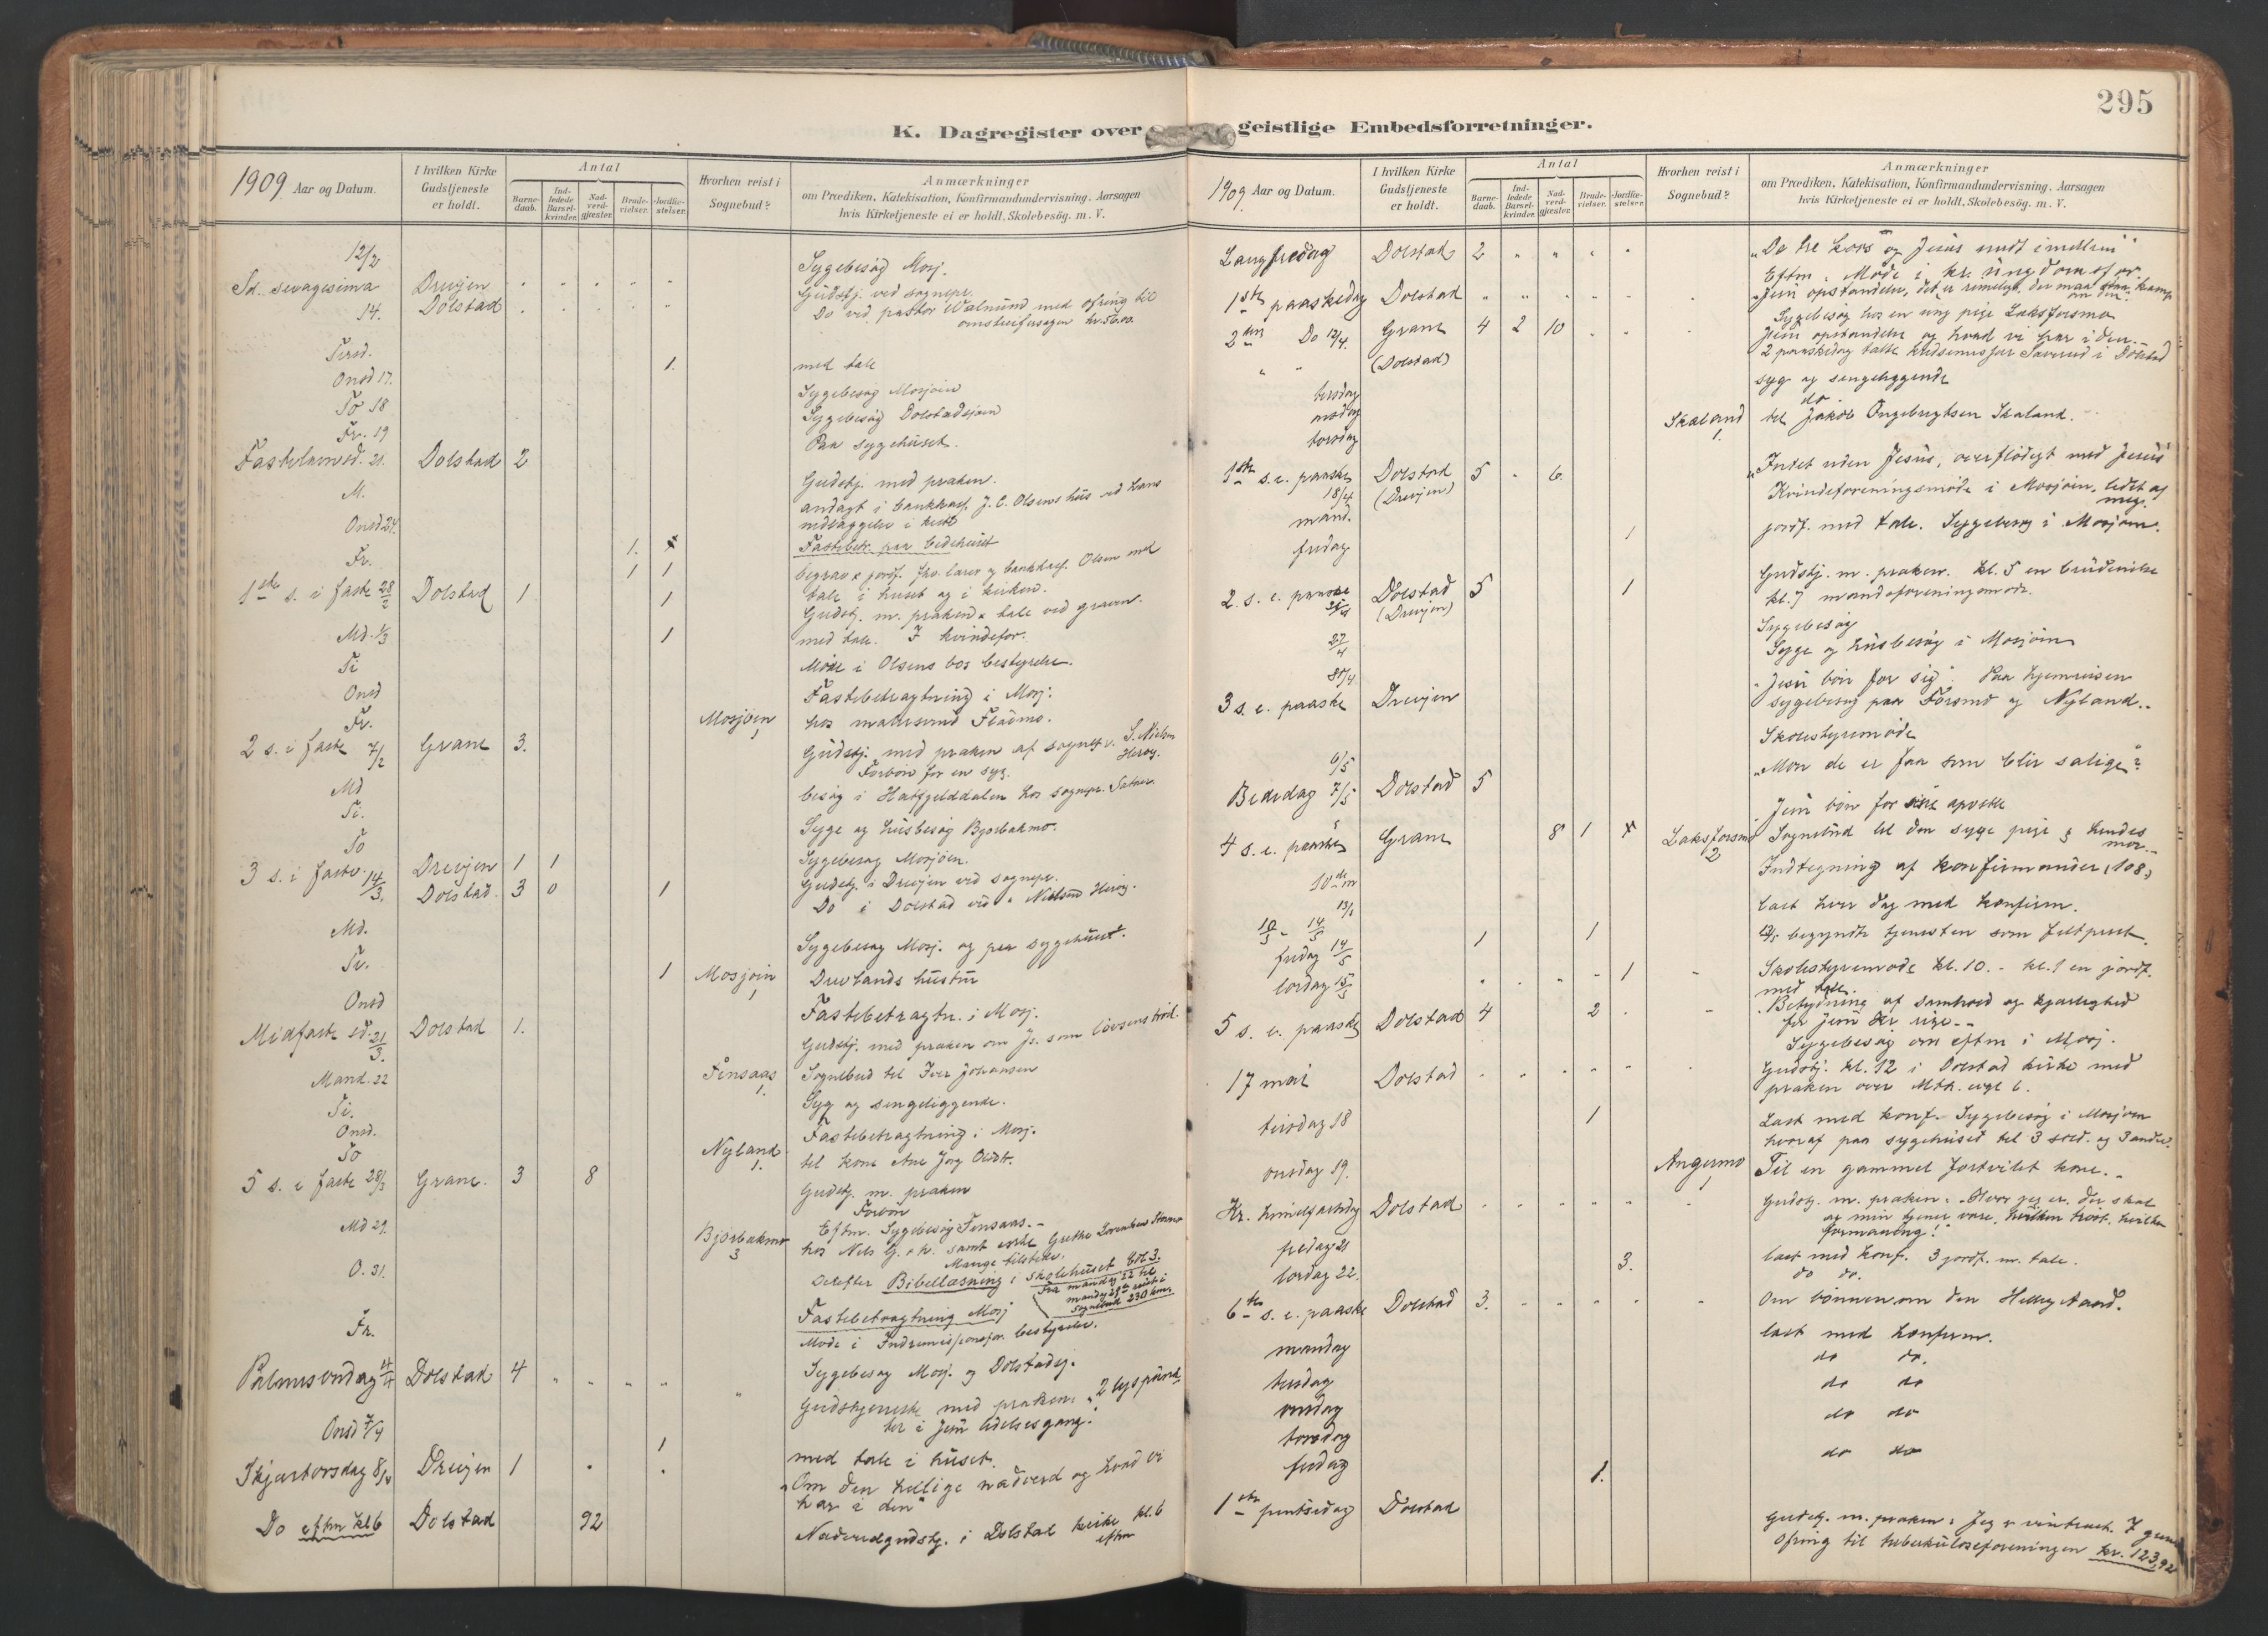 295
K. Dagregister over geistlige Embedsforretninger.
1909 Aar og Datum.
I hvilken Kirke Gudstjeneste er holdt.
Antal
Barne-daab.
Ind-ledede Barsel-kvinder.
Nad-verd-gjæster.
Brude-vielser.
Jordfæ-stelser.
Hvorhen reist i Sognebud?
Anmærkninger
om Prædiken, Katekisation, Konfirmandundervisning. Aarsagen
hvis Kirketjeneste ei er holdt. Skolebesög. m. V.
12/2 Sygebesøg Mosj.
Sd. sexagesima Drevjen Gudstj. ved sognepr.
14. Dolstad Do ved pastor Walnum med ofring til
kr. 56.00
Tirsd. 1. med tale
Onsd 17. Sygebesøg Mosjøen
To 18 Sygebesøg Dolstadsjøen
Fr. 19 Paa sygehuset.
Fastelavnsd. 21. Dolstad 2 Gudstj. med præken.
M. andagt i bankkass. J. C. Olsens hus ved hans
nedlæggelse i kiste
Onsd 24. Fastebetr. paa bedehuset
Fr. 1 1 Olsen med
tale i huset og i kirken.
1ste s. i faste 28/2 Dolstad 1 1 Gudstj. m. præken & tale ved graven.
Md. 1/3 1 med tale. I kvindefor.
Ti Møde i Olsens bos bestyrelse.
Onsd Fastebetragtning i Mosj.
Fr. Mosjøen 1 hos
2 s. i faste 7/2 Grane 3. Gudstj. med præken af sognepr. S. Nielsen
Herøy.
Forbøn for en syg.
Md besøg i Hatfjelddalen hos sognepr.
Ti. Syge og husbesøg Bjorbækmo.
To Sygebesøg Mosjøen.
3 s. i faste 14/3. Drevjen 1 1 Gudstj. i Drevjen ved sognepr.
Dolstad 3 0 1 Do i Dolstad ved
Md. Sygebesøg Mosj. og paa sygehuset.
Ti. 1 Mosjøen 1 Drevlands hustru
Onsd Fastebetragtn. i Mosj.
Midfaste sd. 21/3. Dolstad 1. Gudstj. med præken om Js. som livsens brød.
Mand. 22 Finsaas 1. Sognebud til Iver Johansen
Ti. Syg og sengeliggende.
Onsd. Fastebetragtning i Mosj.
To Nyland 1. til kone Ane
5 s. i faste 28/3 Grane. 3 8 Gudstj. m. præken
Forbøn
Eftm. Sygebesøg Finsaas.
Md 29. Bjorbækmo 3 hos Nils
Mange tilstede.
O. 31. Derefter Bibellæsning i skolehuset
Fra mandag 22 til
mandag 29
230 km.
Fastebetragtning Mosj
Fr. Møde i Indremisjonsfor. bestyrelse.
Sygebesøg Mosj. og Dolstadsj.
Palmesøndag 4/4 Dolstad 4 Gudstjeneste med præken: "2 lyspunk-
ter i Jesu lidelsesgang."
Onsd 7/4 1 med tale i huset.
Skjærtorsdag 8/4 Drevjen 1 "Om den hellige nadverd og hvad vi
har i den"
Do eftm kl 6 Dolstad 92 Nadverdgudstj. i Dolstad kirke kl. 6
eftm
1909. Aar og Datum.
I hvilken Kirke Gudstjeneste er holdt.
Antal
Barne-daab.
Ind-ledede Barsel-kvinder.
Nad-verd-gjæster.
Brude-vielser.
Jordfæ-stelser.
Hvorhen reist i Sognebud?
Anmærkninger
om Prædiken, Katekisation, Konfirmandundervisning. Aarsagen
hvis Kirketjeneste ei er holdt. Skolebesög. m. V.
Langfredag Dolstad 2 "De tre kors og Jesus midt imellem"
Eftm. Møde i kr. ungdomsfor.
1ste paaskedag Dolstad Jesu opstandelse, det er rimeligt, der maa staa kamp
om den.
Sygebesøg hos en ung pige Laksforsmo
2den Do 12/4. Grane 4 2 10 Jesu opstandelse og hvad vi har i den.
(Dolstad) 2 paaskedag talte
tirsdag syg og sengeliggende
onsdag do.
torsdag Skaland 1. til Jakob Ingebrigtsen Skaland.
1ste s. e. paaske Dolstad 5 6. "Intet uden Jesus, overflødigt med Jesus"
18/4 (Drevjen)
mand. Kvindeforeningsmøde i Mosjøen, ledet af
meg.
fredag 1 jordf. med tale. Sygebesøg i Mosjøen.
2. s. e. paaske 25/4 Dolstad 5 1 Gudstj. m. præken. Kl. 5 en brudevielse
(Drevjen) kl. 7 mandsforeningsmøde.
27/4 Sygebesøg
30/4 Syge og husbesøg i Mosjøen
3 s. e. paaske Drevjen "Jesu bøn for sig". Paa hjemreisen
sygebesøg paa Forsmo og Nyland.
6/5 Skolestyremøde
Bededag 7/5 Dolstad 5 "Mon de er faa som blir salige?"
4 s. e. paaske Grane 8 1 Laksforsmo 2 Jesu bøn for sine apostle
Sognebud til den syge pige & hendes
mor.
10de Indtegning af konfirmander (108)
13/5 læst hver dag med konfirm.
10/5 - 14/5 begyndte tjenesten som feltprest.
fredag 14/5 1 1
lørdag 15/5 1 Skolestyremøde kl. 10. - kl. 1 en jordf.
med tale.
5 s. e. paaske Dolstad 4 2 Betydning af samhold og kjærlighed
for Jesu Kr. rige.
Sygebesøg om eftm i Mosj.
17 mai Dolstad Gudstj. kl. 12 i Dolstad kirke med
præken over Mth. evgl 6.
tirsdag 18 1 Læst med konf. Sygebesøg i Mosjøen
hvoraf paa sygehuset til 3 sold. og 3 andre.
onsdag 19. Angermo 1 Til en gammel fortvilet kone.
Kr. himmelfartsdag Dolstad Gudstj. m. præken: "Hvor jeg er, der skal
og min tjener være, hvilken trøst, hvilken
formaning!"
fredag 21 3. læst med konf. 3 jordf. m. tale.
lørdag 22. do do.
6te s. e. paaske Dolstad 3. Om bønnen om den Hellig Aand.
mandag læst med konfirm.
tirsdag do do.
onsdag do do
torsdag do do
fredag 1. do do
1ste pintsedag Dolstad Gudstj. m. præken: Jeg er vintræet.
Ofring til tuberkuloseforeningen kr. 123,92